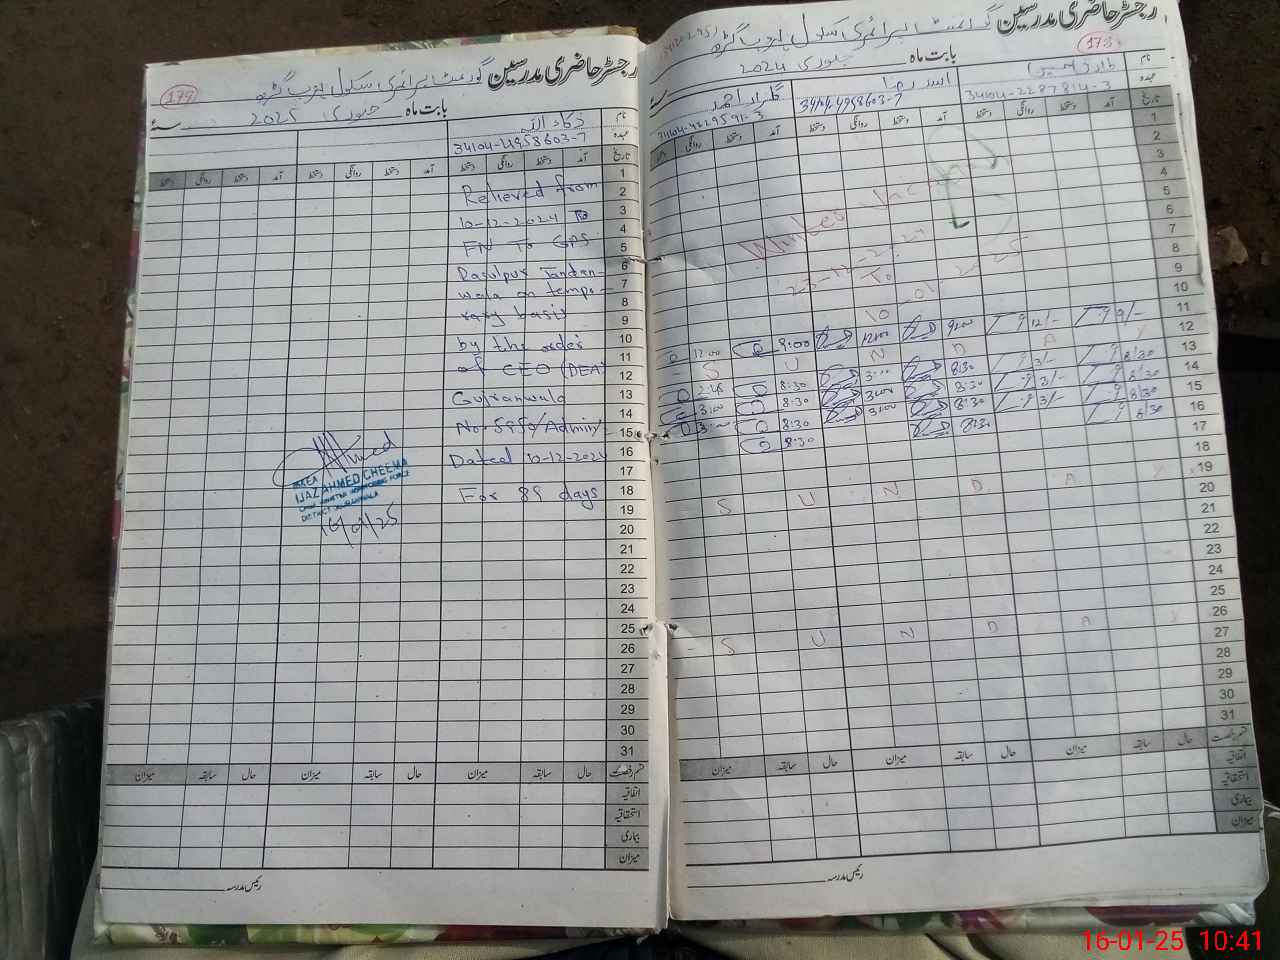 رجسٹر حاضری مدرسین گورنمنٹ پرائمری سکول
179
بابت ماہ جنوری 2025 سنہ
نام ذکاء اللہ
عہدہ 34104-4958603-7
تاریخ آمد دستخط روانگی دستخط آمد دستخط روانگی دستخط آمد دستخط روانگی دستخط
1
2
3
4
5
6
7
8
9
10
11
12
13
14
15
16
17
18
19
20
21
22
23
24
25
26
27
28
29
30
31
Relieved from
10-12-2024 To
FN To GPS
Rasulpur Tandan-
wala on tempo-
rary basis
by the order
of CEO (DEA)
Gujranwala
No. 5959/Admin/
Dated 10-12-2024
For 89 days
Ahmed
MEA
IJAZ AHMED CHEEMA
DISTRICT GUJRANWALA
16/01/25
قسم رخصت حال سابقہ میزان حال سابقہ میزان حال سابقہ میزان
اتفاقیہ
استحقاقیہ
بیماری
میزان
رئیس مدرسہ
رجسٹر حاضری مدرسین گورنمنٹ پرائمری سکول
178
بابت ماہ جنوری 2024 سنہ
نام طارق حسین اسد رضا گلزار احمد
عہدہ 34104-2287814-3 34104-4958603-7 34104-4229591-3
تاریخ
آمد دستخط روانگی دستخط آمد دستخط روانگی دستخط آمد دستخط روانگی دستخط
1
2
3
4
5
6
7
8
9
10
11
12
13
14
15
16
17
18
19
20
21
22
23
24
25
26
27
28
29
30
31
Winter Vacation
To
12:00 9:00 12:00 9:00 12/- 9/-
S U N D A Y
2:45 8:30 3:00 8:30 3/- 8:30
3:00 8:30 3:00 8:30 3/- 8:30
3:00 8:30 3:00 8:30 3/- 8:30
8:30 8:30 8:30
S U N D A Y
S U N D A Y
قسم رخصت حال سابقہ میزان حال سابقہ میزان حال سابقہ میزان
اتفاقیہ
استحقاقیہ
بیماری
میزان
رئیس مدرسہ
16-01-25 10:41